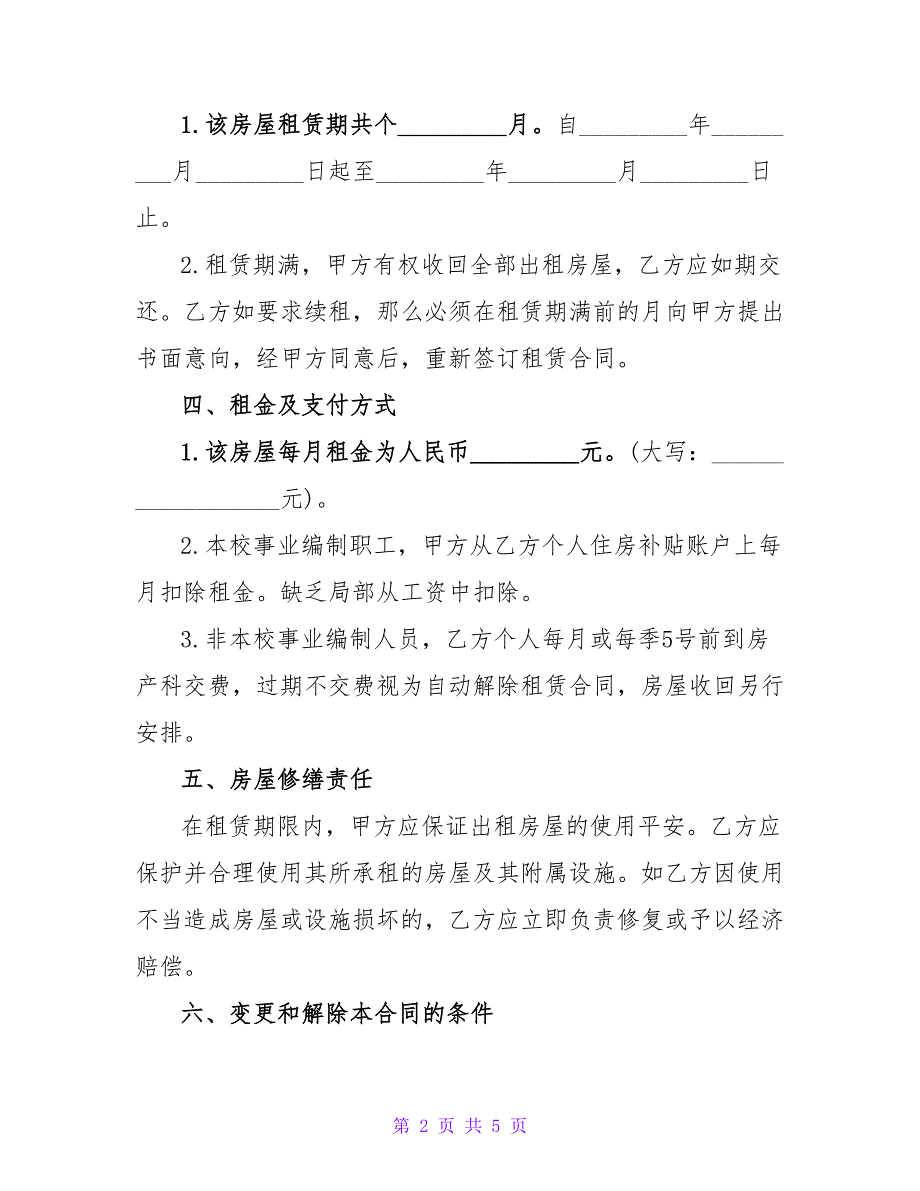 1.该房屋租赁期共个_________月。自_________年______
___月_________日起至_________年_________月_________日
止。
2.租赁期满，甲方有权收回全部出租房屋，乙方应如期交
还。乙方如要求续租，那么必须在租赁期满前的月向甲方提出
书面意向，经甲方同意后，重新签订租赁合同。
四、租金及支付方式
1.该房屋每月租金为人民币_________元。(大写：______
____________元)。
2.本校事业编制职工，甲方从乙方个人住房补贴账户上每
月扣除租金。缺乏局部从工资中扣除。
3.非本校事业编制人员，乙方个人每月或每季5号前到房
产科交费，过期不交费视为自动解除租赁合同，房屋收回另行
安排。
五、房屋修缮责任
在租赁期限内，甲方应保证出租房屋的使用平安。乙方应
保护并合理使用其所承租的房屋及其附属设施。如乙方因使用
不当造成房屋或设施损坏的，乙方应立即负责修复或予以经济
赔偿。
六、变更和解除本合同的条件
第 2 页 共 5 页